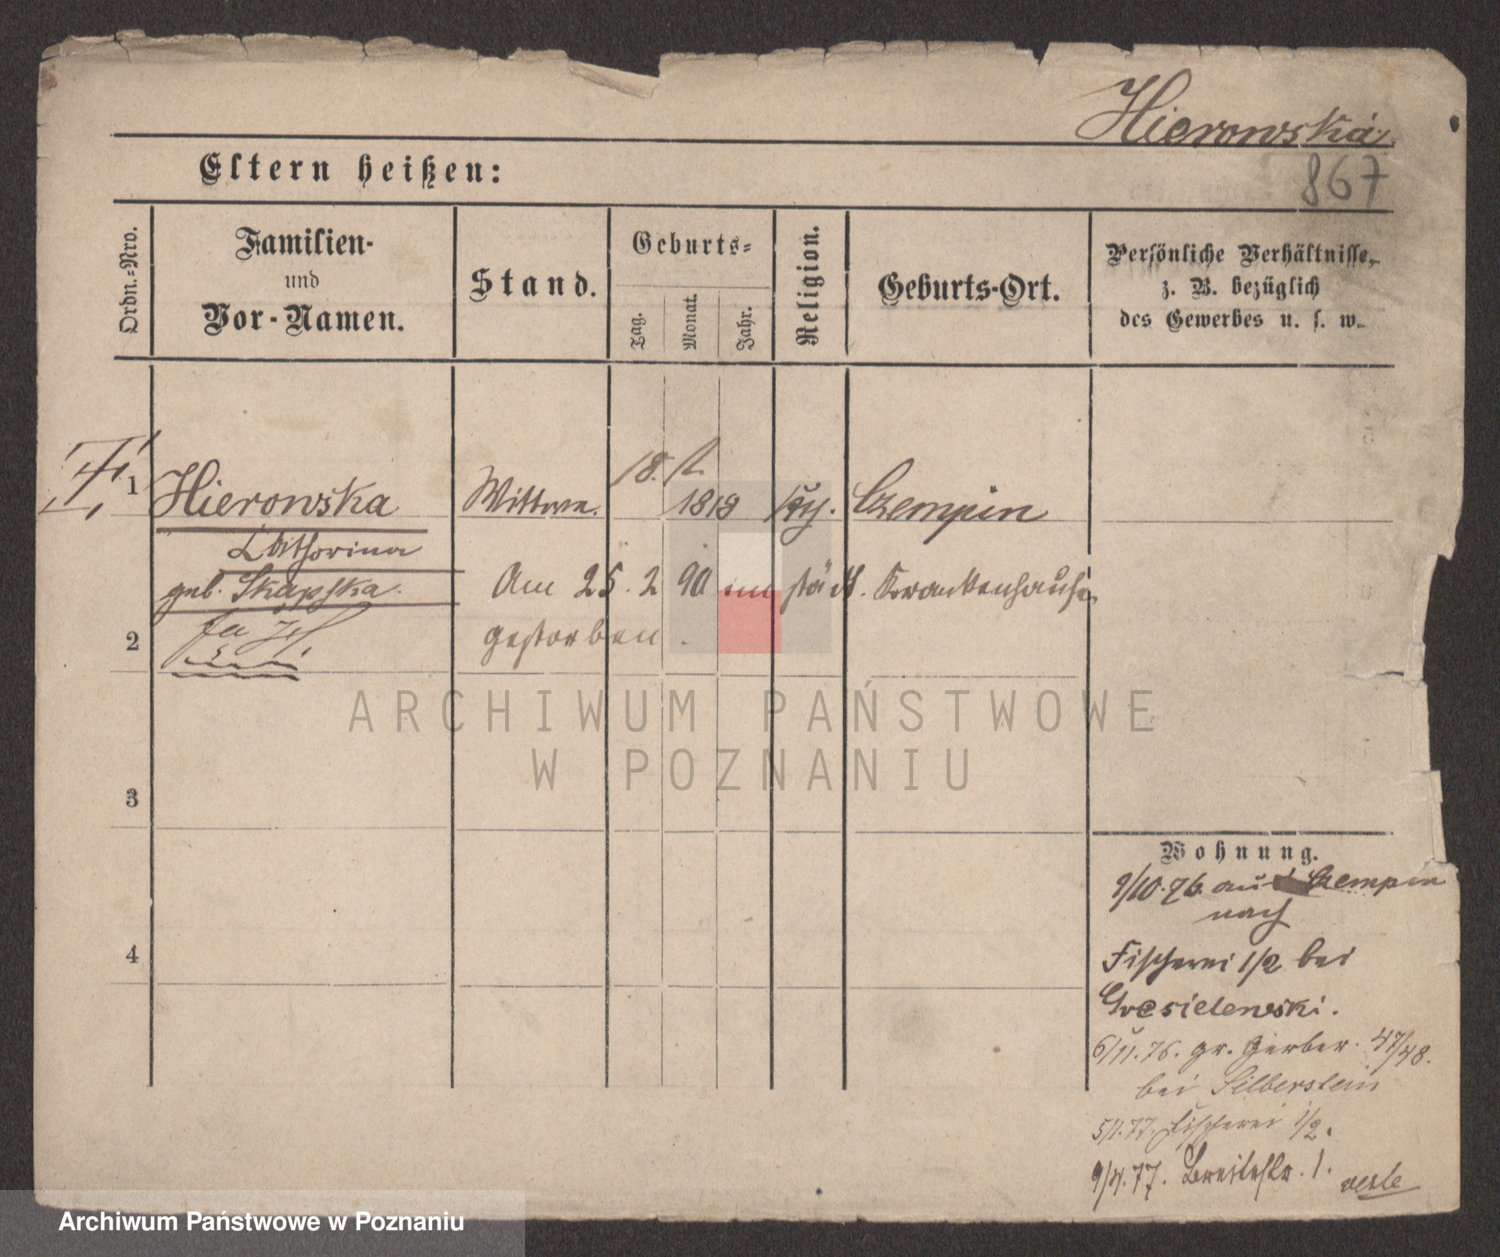 Hierowska
867
Eltern heißen:
Ordn.-Nro.
Familien-
und
Vor-Namen.
Stand.
Geburts-
Tag.
Monat.
Jahr.
Religion.
Geburts-Ort.
Persönliche Verhältnisse,
z. B. bezüglich
des Gewerbes u. s. w.
1
Hierowska
Wittwe.
18.
1819
kth.
Czempin
Catharina
geb. Skapska.
Am 25. 2 90 im städt. Krankenhause
gestorben.
2
ARCHIWUM PAŃSTWOWE
W POZNANIU
3
4
Wohnung.
9/10.76 aus Czempin
nach
Fischerei 1/2 bei
6/11.76. gr. Gerber. 47/48.
bei Silberstein
5/1.77. Fischerei 1/2.
9/4.77. Breitestr. 1.
Archiwum Państwowe w Poznaniu